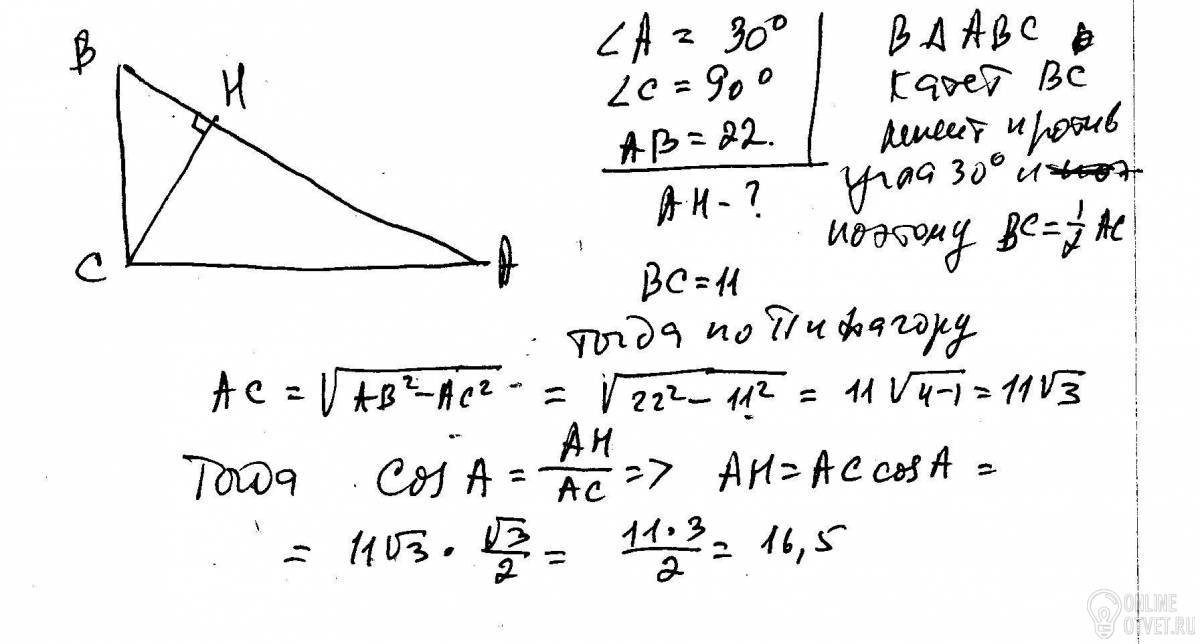 B
H
C
A
∠A = 30°
∠C = 90°
AB = 22.
AH - ?
В Δ ABC
катет BC
лежит против
угла 30° и
поэтому BC = 1/2 AC
BC = 11
тогда по Пифагору
AC = √(AB² - AC²) = √(22² - 11²) = 11√(4-1) = 11√3
Тогда cos A = AH/AC => AH = AC cos A =
= 11√3 · √3/2 = 11·3/2 = 16,5
ONLINE
OTVET.RU